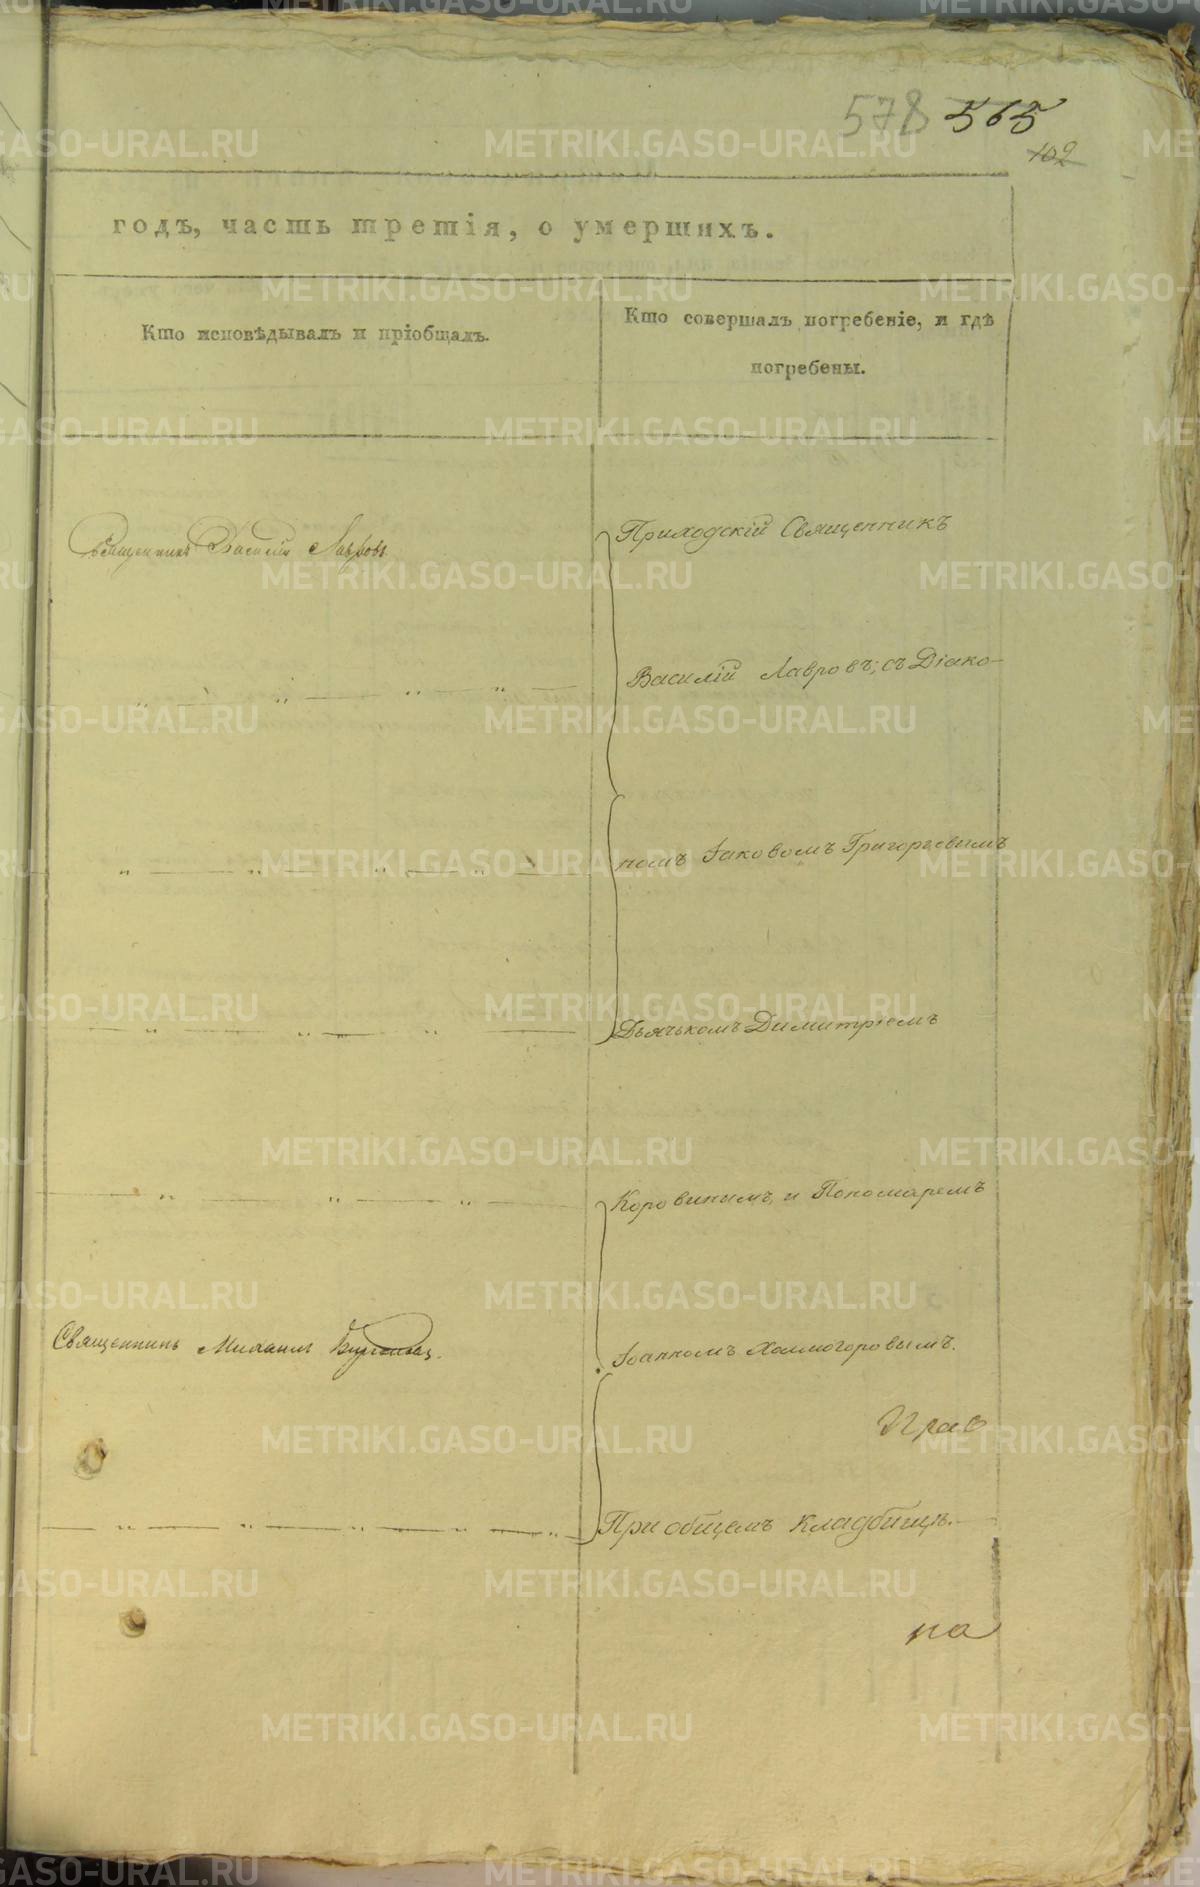 578 565
102
годъ, часть третія, о умершихъ.
Кто исповѣдывалъ и пріобщалъ.
Кто совершалъ погребеніе, и гдѣ
погребены.
Священникъ Василій Лавровъ
Приходскій Священникъ
Василій Лавровъ; съ Діако-
номъ Іаковомъ Григорьевымъ
Дьячькомъ Димитріемъ
Коровинымъ, и Пономаремъ
Священникъ Михаилъ
Іоанномъ Холмогоровымъ.
При общемъ кладбищѣ.
на
METRIKI.GASO-URAL.RU